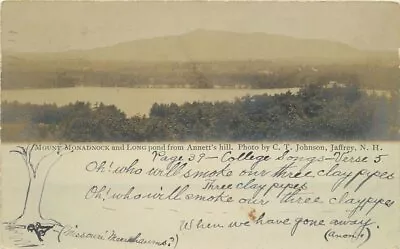 MOUNT MONADNOCK and LONG pond from Annett's hill. Photo by C. T. Johnson, Jaffrey, N. H.
Page 39 - College Songs - Verse 5
Oh! who will smoke our three clay pipes
Three clay pipes
Oh! who will smoke our three clay pipes
When we have gone away.
(Anon.)
(Missouri ?)